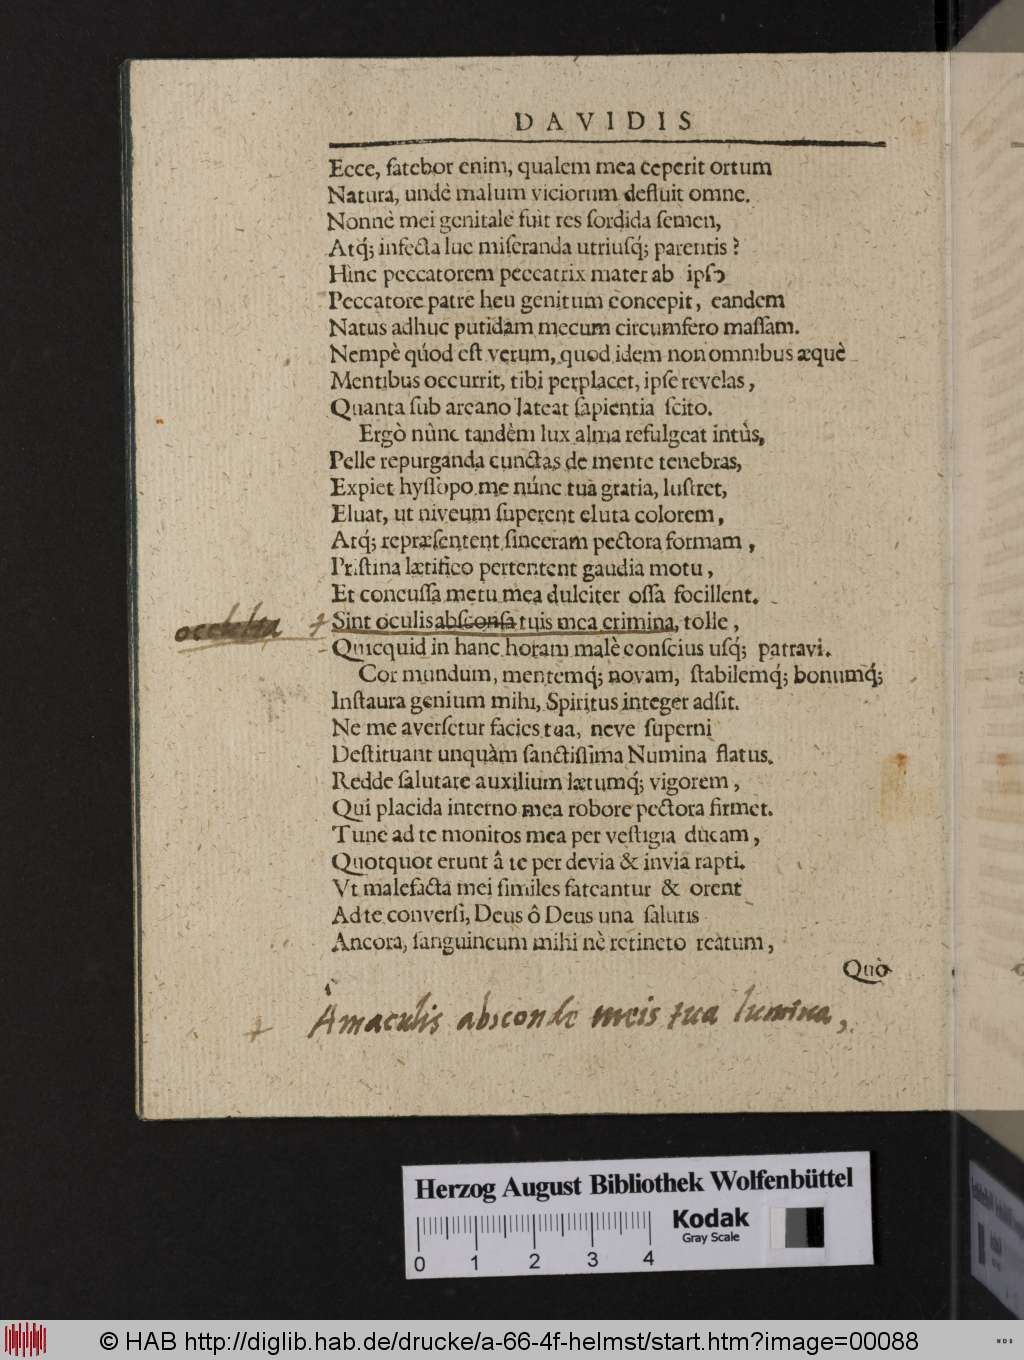 DAVIDIS
Ecce, fatebor enim, qualem mea ceperit ortum
Natura, undè malum viciorum defluit omne.
Nonnè mei genitale fuit res ſordida ſemen,
Atq́; infecta lue miſeranda utriuſq́; parentis?
Hinc peccatorem peccatrix mater ab ipſo
Peccatore patre heu genitum concepit, eandem
Natus adhuc putidam mecum circumfero maſſam.
Nempè quód eſt verum, quod idem non omnibus æquè
Mentibus occurrit, tibi perplacet, ipſe revelas,
Quanta ſub arcano lateat ſapientia ſcito.
Ergò nùnc tandèm lux alma refulgeat intùs,
Pelle repurganda cunctas de mente tenebras,
Expiet hyſſopo me núnc tua gratia, luſtret,
Eluat, ut niveum ſuperent eluta colorem,
Atq́; repræſentent ſinceram pectora formam,
Priſtina lætifico pertentent gaudia motu,
Et concuſſa metu mea dulciter oſſa focillent.
occlusa + Sint oculis abſconſa tuis mea crimina, tolle,
Quicquid in hanc horam malè conſcius uſq́; patravi.
Cor mundum, mentemq́; novam, ſtabilemq́; bonumq́;
Inſtaura genium mihi, Spiritus integer adſit.
Ne me averſetur facies tua, neve ſuperni
Deſtituant unquàm ſanctiſſima Numina flatus.
Redde ſalutare auxilium lætumq́; vigorem,
Qui placida interno mea robore pectora firmet.
Tunc ad te monitos mea per veſtigia ducam,
Quotquot erunt â te per devia & invia rapti.
Vt malefacta mei ſimiles fateantur & orent
Ad te converſi, Deus ô Deus una ſalutis
Ancora, ſanguineum mihi nè retineto reatum,
Quò
+ A maculis absconde meis tua lumina,
Herzog August Bibliothek Wolfenbüttel
Kodak
Gray Scale
0 1 2 3 4
© HAB http://diglib.hab.de/drucke/a-66-4f-helmst/start.htm?image=00088